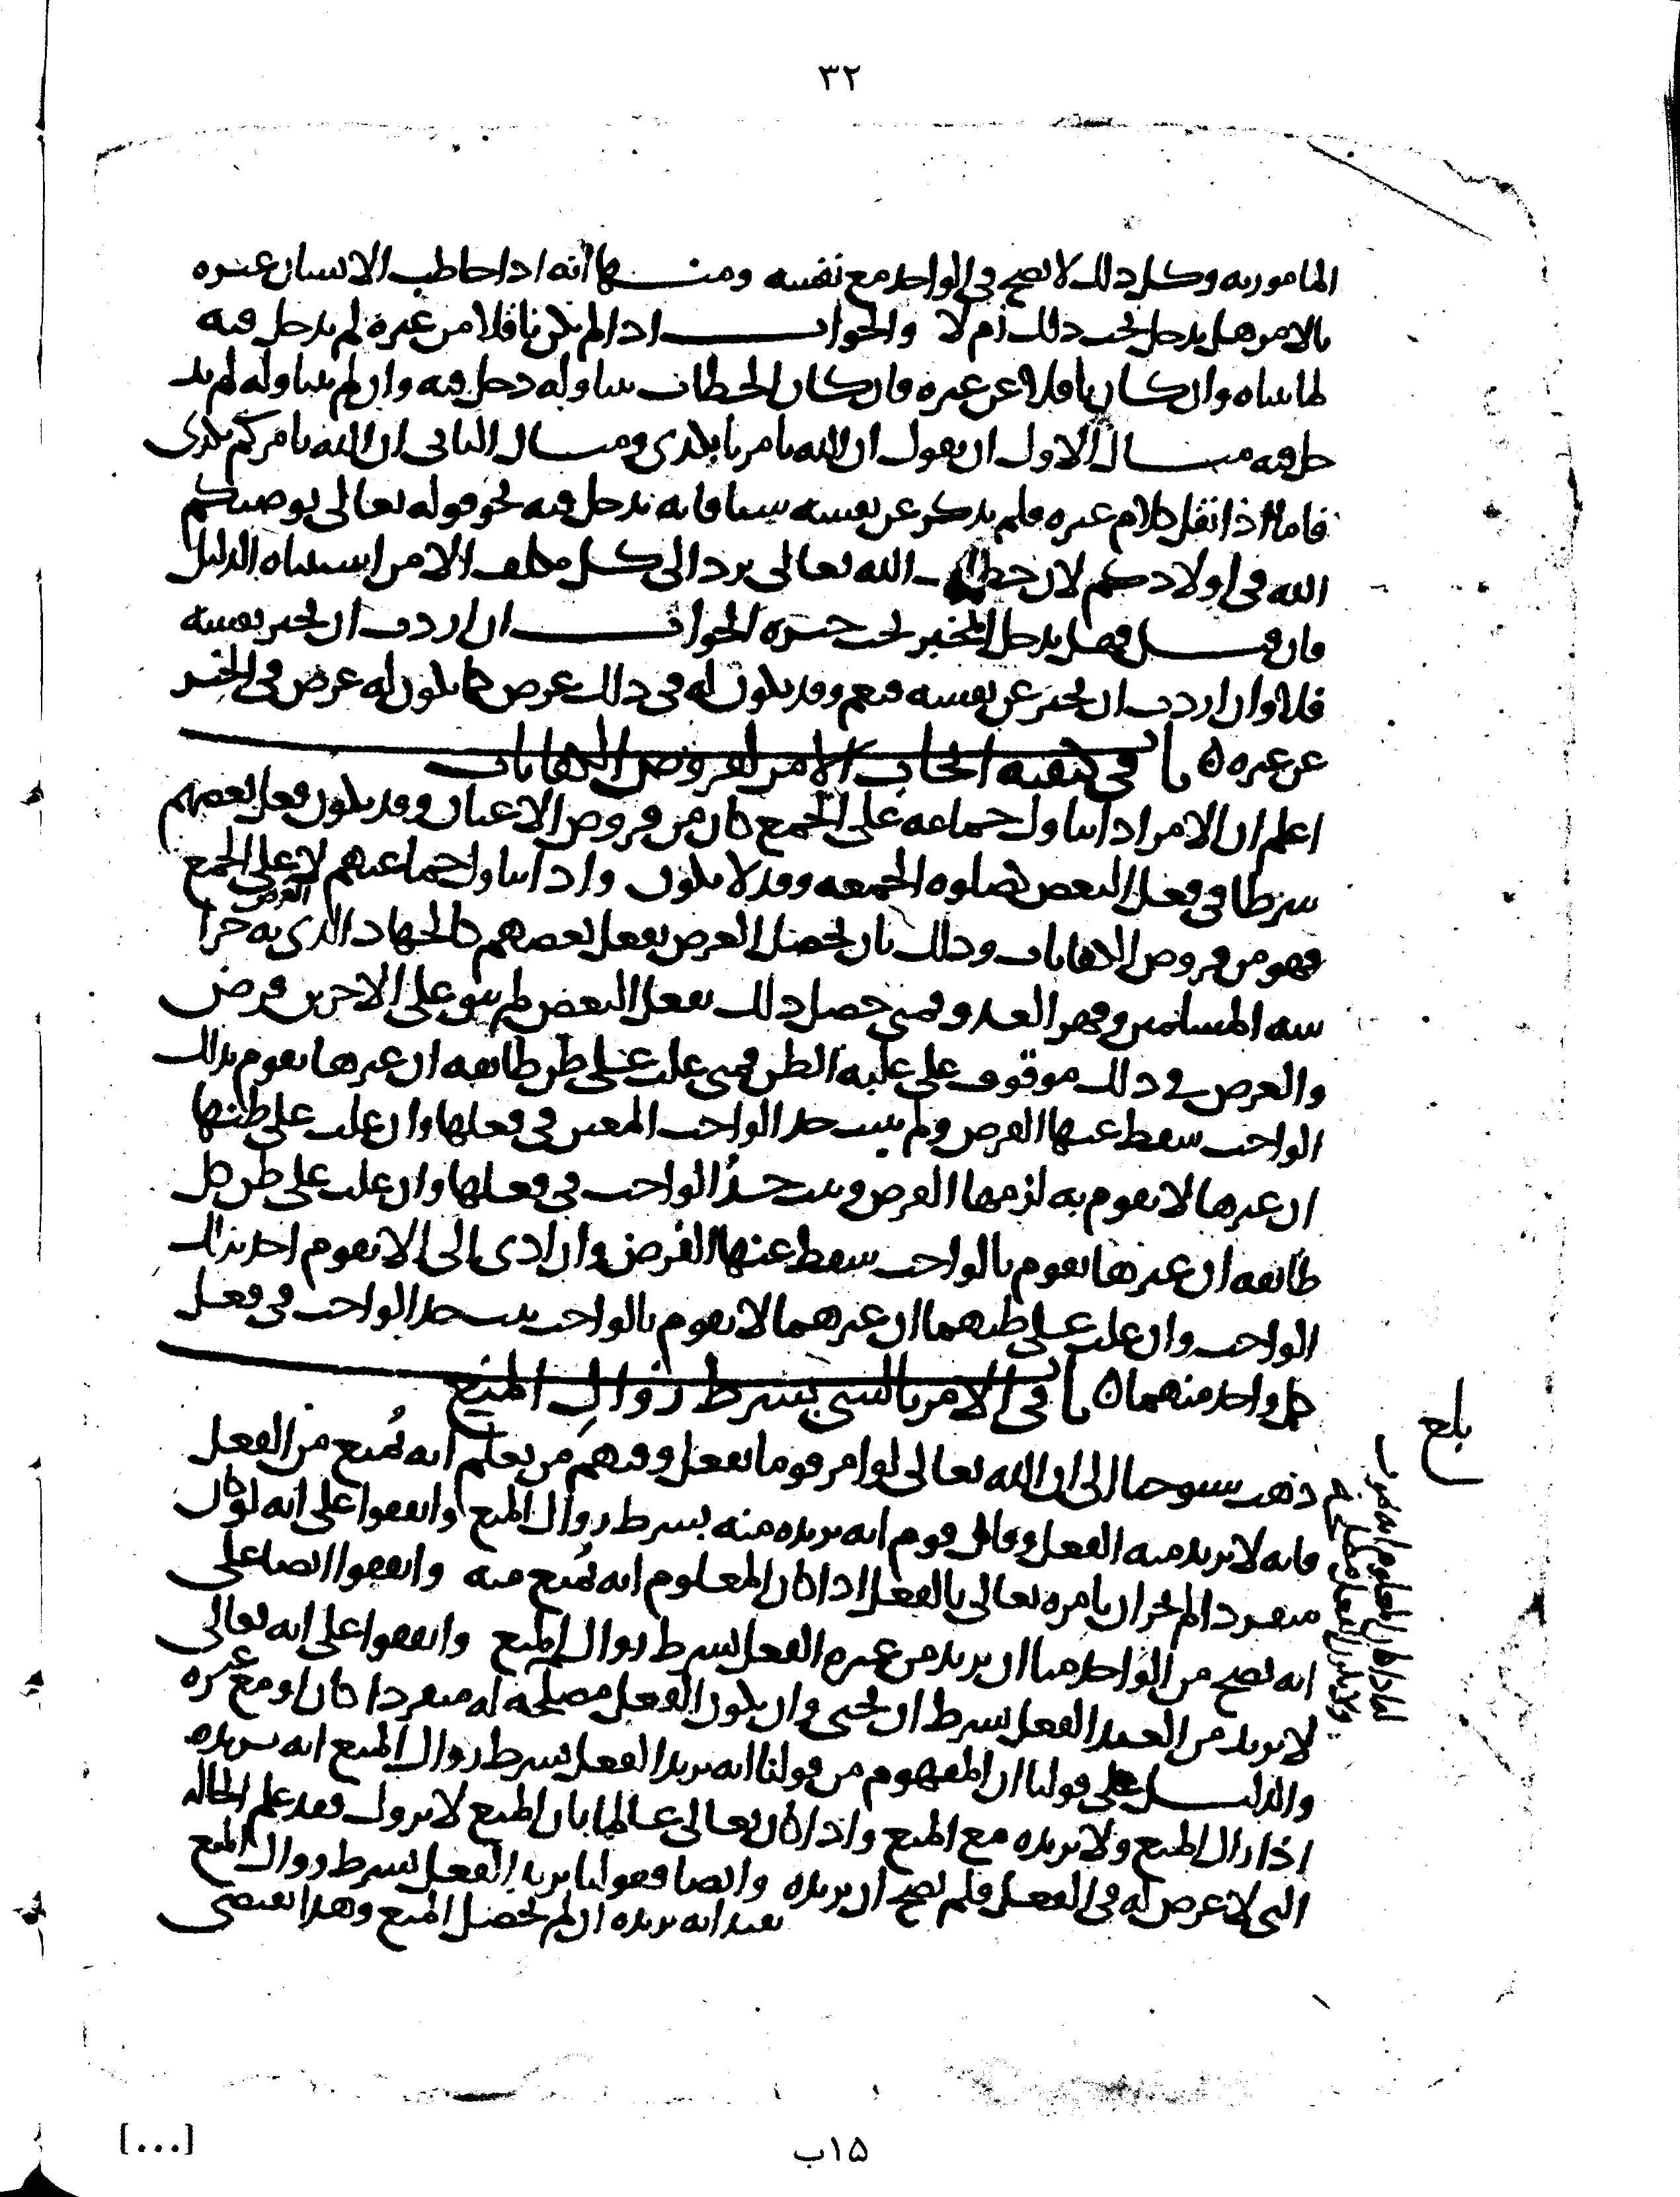 ٣٢
المامور به وكل ذلك لا يصح في الواحد مع نفسه ومنها انه اذا خاطب الانسان غيره
بالامر هل يدخل تحت ذلك ام لا والجواب اذا لم يكن ناقلا من غيره لم يدخل فيه
لما بيناه وان كان ناقلا عن غيره فان كان الخطاب يتناوله دخل فيه وان لم يتناوله لم يد
خل فيه مثال الاول ان يقول ان الله يامرنا بكذى ومثال الثاني ان الله يامركم بكذى
فاما اذا نقل كلام غيره فلم يذكر عن نفسه شيئا فانه يدخل فيه نحو قوله تعالى يوصيكم
الله في اولادكم لان خطاب الله تعالى يرد الى كل مكلف الا من استثناه الدليل
فان قيل فهل يدخل المخبر تحت خبره الجواب ان اردت ان يخبر نفسه
فلا وان اردت ان يخبر عن نفسه فنعم وقد يكون له في ذلك غرض كما يكون له غرض في الخبر
عن غيره ٥ باب في كيفية ايجاب الامر لفروض الكفايات
اعلم ان الامر اذا تناول جماعة على الجمع كان من فروض الاعيان وقد يكون فعل بعضهم
شرطا في فعل البعض كصلوة الجمعة وقد لا يكون واذا تناول جماعتهم لا على الجمع
فهو من فروض الكفايات وذلك بان يحصل الغرض بفعل بعضهم كالجهاد الذي به حرا
الغرض
سة المسلمين وقهر العدو فمتى حصل ذلك بفعل البعض لم يبق على الاخرين فرض
والفرض في ذلك موقوف على غلبة الظن فمتى غلب على ظن طائفة ان غيرها يقوم بذلك
الواجب سقط عنها الفرض ولم يثبت حد الواجب المعين في فعلها وان غلب على ظنها
ان غيرها لا يقوم به لزمها الفرض ويثبت حدُّ الواجب في فعلها وان غلب على ظن كل
طائفة ان غيرها يقوم بالواجب سقط عنها الفرض وان ادى الى الا يقوم احد بذلك
الواجب وان غلب على ظنهما ان غيرهما لا يقوم بالواجب يثبت حد الواجب في فعل
كل واحد منهما ٥ باب في الامر بالشي بشرط زوال المنع
بلغ
ذهب شيوخنا الى ان الله تعالى لو امر قوما بفعل وفيهم من يعلم انه يُمنع من الفعل
فانه لا يريد منه الفعل وقال قوم انه يريده منه بشرط زوال المنع واتفقوا على انه لو كان
منفردا لم يجز ان يامره تعالى بالفعل اذا كان المعلوم انه يُمنع منه واتفقوا ايضا على
انه يصح من الواحد منا ان يريد من غيره الفعل بشرط زوال المنع واتفقوا على انه تعالى
لا يريد من العبد الفعل بشرط ان يحيى وان يكون الفعل مصلحة له منفردا كان او مع غيره
والدليل على قولنا ان المفهوم من قولنا انه يريد الفعل بشرط زوال المنع انه يريده
اذا زال المنع ولا يريده مع المنع واذا كان تعالى عالما بان المنع لا يزول فقد علم الحالة
التي لا غرض له في الفعل فلم يصح ان يريده وايضا فقولنا يريد الفعل بشرط زوال المنع
يفيد انه يريده ان لم يحصل المنع وهذا يقتضي
[...]
١٥ب